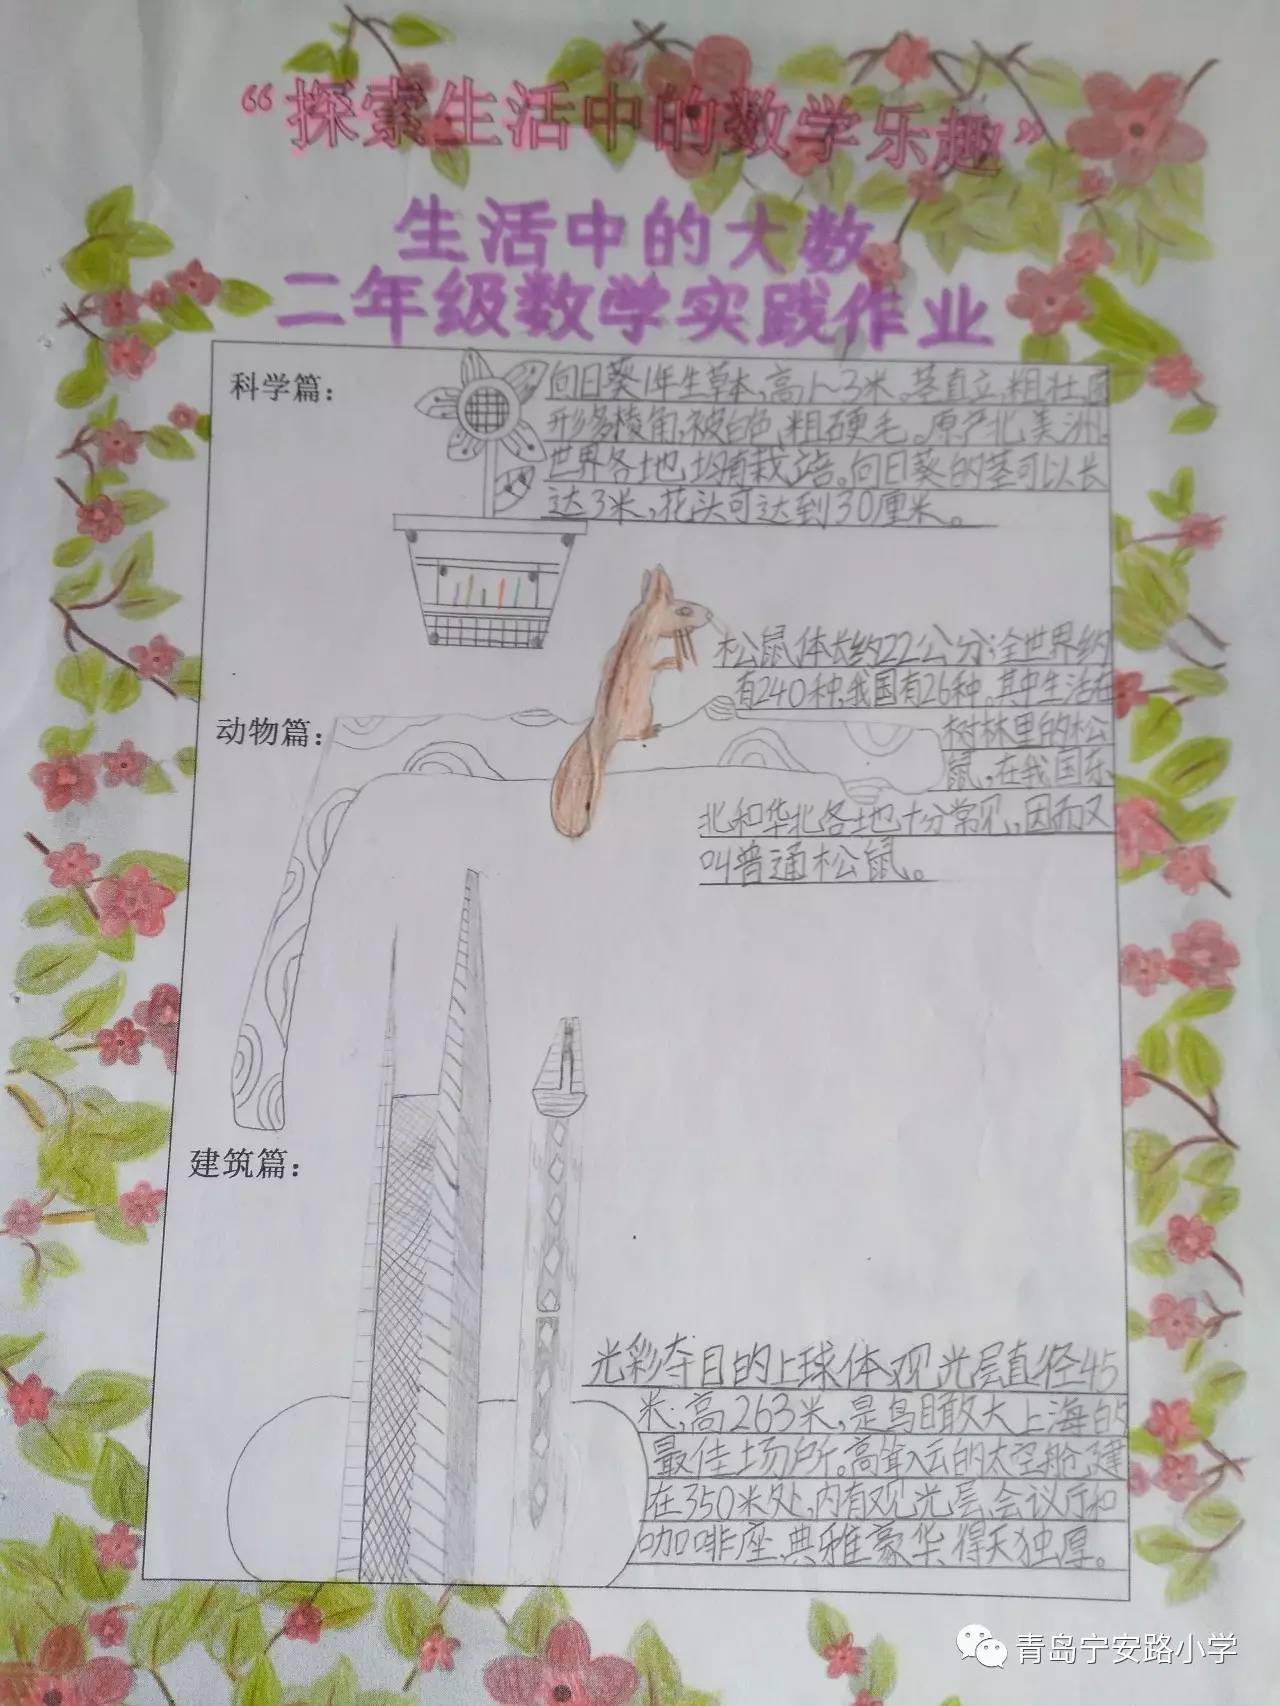 “探索生活中的数学乐趣”
生活中的大数
二年级数学实践作业
科学篇：
向日葵1年生草本，高1~3米。茎直立，粗壮，圆
形多棱角，被白色粗硬毛。原产北美洲，
世界各地均有栽培。向日葵的茎可以长
达3米，花头可达到30厘米。
松鼠体长约22公分；全世界约
有240种，我国有26种。其中生活在
动物篇：
树林里的松
鼠，在我国东
北和华北各地十分常见，因而又
叫普通松鼠。
建筑篇：
光彩夺目的上球体，观光层直径45
米，高263米，是鸟瞰大上海的
最佳场所。高耸入云的太空舱，建
在350米处，内有观光层，会议厅和
咖啡座，典雅豪华，得天独厚。
青岛宁安路小学